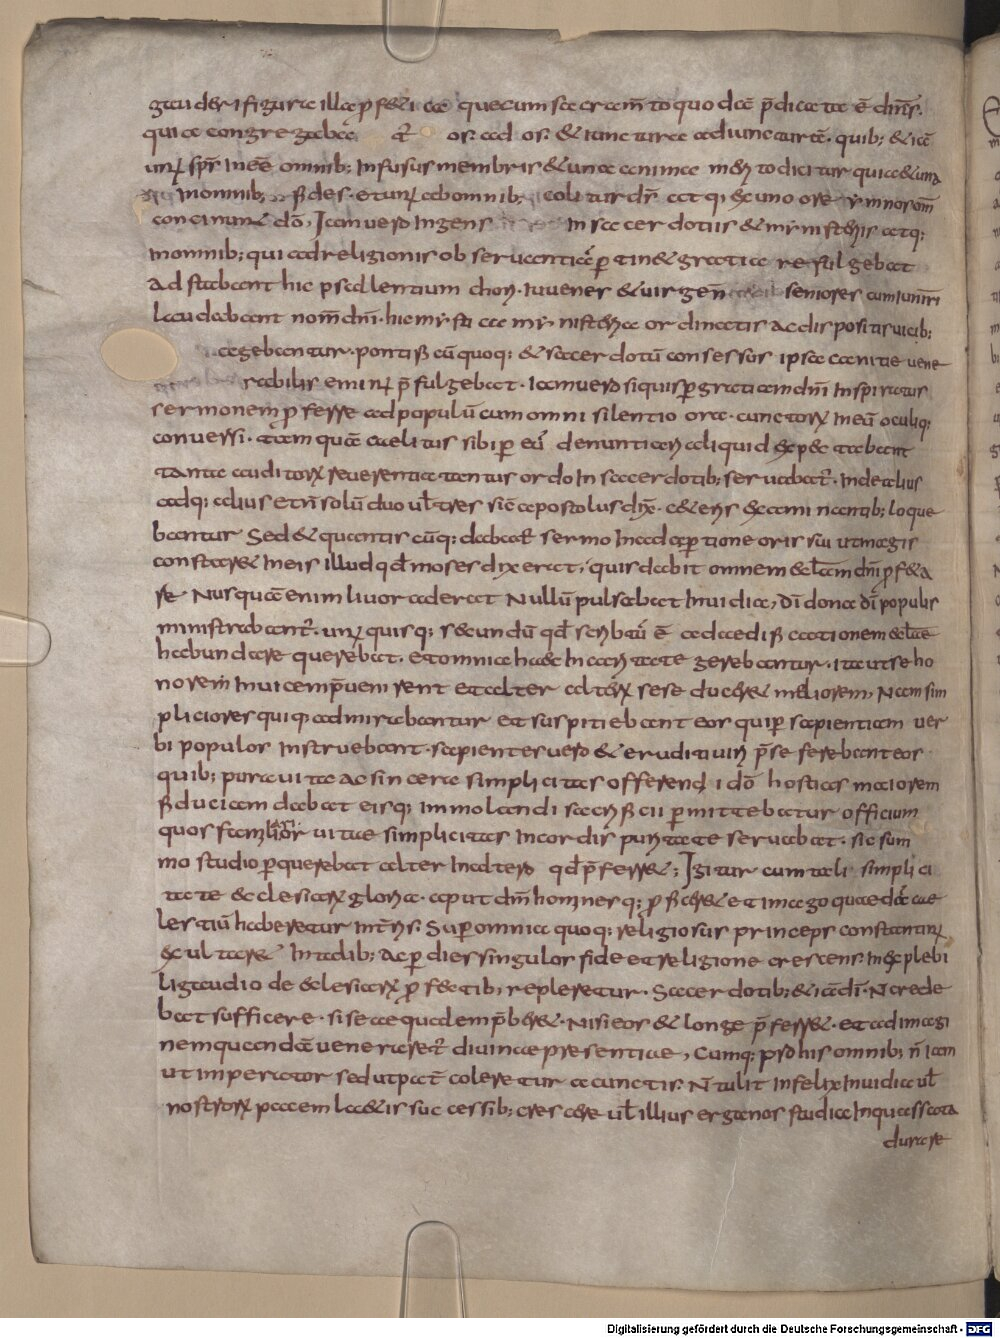 gaudet figura illa profetica quecum sacramto quodã p̄dicata ē dnı̄s.
quia congregabat os. ad os. & iunctura ad iuncturã. quib; & iã
unus sps̄ inesse omnib; Infusus membris & una anima merito dicitur quia & una
Inomnib; fides. et unus ab omnib; colitur ds̄ atq; ex uno ore ymnorum
concinunt dõ, Iam vero Ingens In sacerdotiis & mynisteriis atq;
Inomnib; qui ad religionis observantiã ptinet gratia refulgebat
Adstabant hic psallentium chori. Iuvenes & virgen seniores cum Iuniori
Laudabant nom̄ dnı̄. hic mystica mynisteria ordinatis ac dispositis vicib;
agebantur. pontificũ quoq; & sacerdotũ consessus ipsa canitie vene
rabilis eminus p̄fulgebat. Iam vero siquis p gratiam dnı̄ Inspiratus
sermonem pferre ad populũ cum omni silentio ora. cunctorum Ineũ oculiq;
conversi. tam quã caelitus sibi p eũ denuntiari aliquid expectabant
tanta auditorum reverentia tantus ordo In sacerdotib; servabatur. Inde alius
adq; alius et n̄ solũ duo vel tres sic̄ apostolus dix̄. ceteris examinantib; loque
bantur Sed & quantis cũq; dabatur sermo In adapertione oris sui ut magis
constaret Ineis illud qđ moses dixerat, quis dabit omnem eccl̄am dnı̄ pfeta
re Nusquã enim livor aderat Nullũ pulsabat Invidia, dī dona dī populis
ministrabant. unus quisq; secundũ qđ scriptũ ē ad aedificationem eccl̄ae
habundare querebat. Et omnia haec In caritate gerebantur. Ita ut se ho
norem Invicem p̄venirent et alter alterum sese duceret meliorem, Nam sim
pliciores quiq; admirabantur et suspitiebant eos qui p sapientiam ver
bi populos Instruebant. sapientes vero & eruditi viri p̄se ferebant eos
quib; pura vita ac sincera simplicitas offerendi dõ hostias maiorem
fiduciam dabat eisq; immolandi sacrificii pmittebatur officium
quos familiarior vitae simplicitas In cordis puritate servabat. sic sum
mo studio p querebat alter In altero qđ p̄ferret; Igitur cum tali simplici
tate ecclesiarum gloria. aput dm̄ hominesq; pficeret et imago quaedã cae
lestiũ haberetur In terris. Super omnia quoq; religiosus princeps constantinus
exultaret In talib; Ac p dies singulos fide et religione crescens. Inexplebi
li gaudio de ecclesiarum pfectib; repleretur. Sacerdotib; & iã dī. N̄ crede
bat sufficere. si se aequalem p̄beret. Nisi eos & longe p̄ferret. et ad imagi
nem quandã veneraretur divinae presentiae, Cumq; pro his omnib; n̄ iam
ut imperator sed ut pater coleretur a cunctis. N̄ tulit Infelix Invidia vel
nostrorum pacem laetis successib; crescere vel illius erga nos studia Inquassata
durare